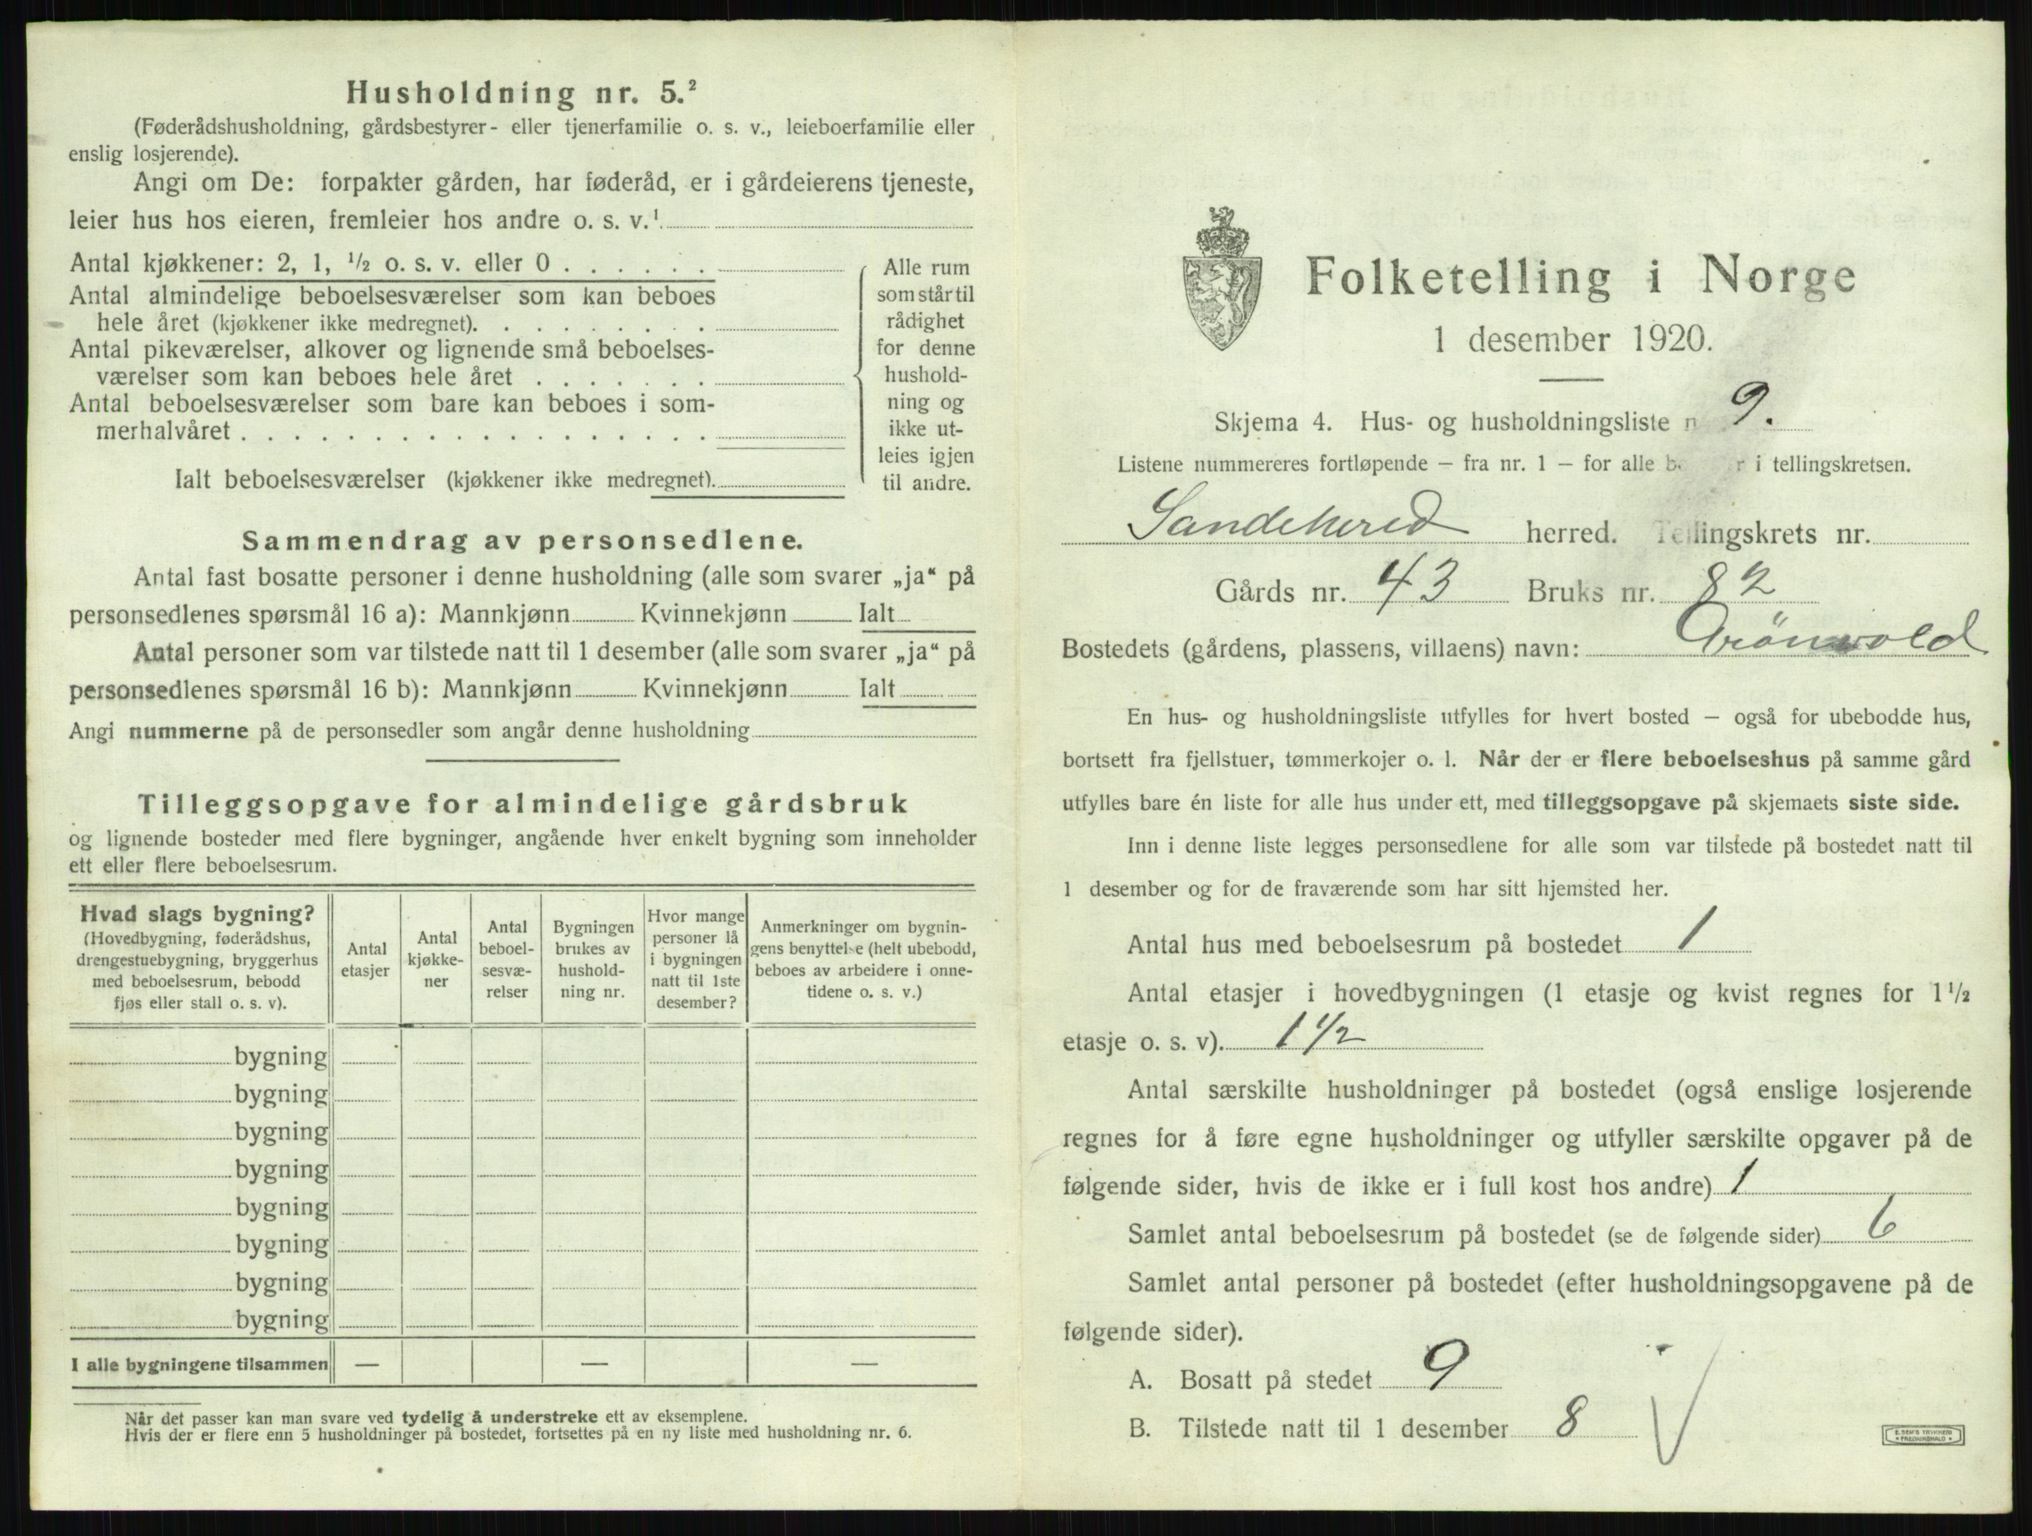 Husholdning nr. 5.²
(Føderådshusholdning, gårdsbestyrer- eller tjenerfamilie o. s. v., leieboerfamilie eller
enslig losjerende).
Angi om De: forpakter gården, har føderåd, er i gårdeierens tjeneste,
leier hus hos eieren, fremleier hos andre o. s. v.¹
Antal kjøkkener: 2, 1, ½ o. s. v. eller 0 . . . . . .
Antal almindelige beboelsesværelser som kan beboes
hele året (kjøkkener ikke medregnet). . . . . . . . .
Antal pikeværelser, alkover og lignende små beboelses-
værelser som kan beboes hele året . . . . . . .
Antal beboelsesværelser som bare kan beboes i som-
merhalvåret . . . . . . . . . . . . . . . . . .
Ialt beboelsesværelser (kjøkkener ikke medregnet).
Alle rum
som står til
rådighet
for denne
hushold-
ning og
ikke ut-
leies igjen
til andre.
Sammendrag av personsedlene.
Antal fast bosatte personer i denne husholdning (alle som svarer „ja“ på
personsedlenes spørsmål 16 a): Mannkjønn Kvinnekjønn Ialt
Antal personer som var tilstede natt til 1 desember (alle som svarer „ja“ på
personsedlenes spørsmål 16 b): Mannkjønn Kvinnekjønn Ialt
Angi nummerne på de personsedler som angår denne husholdning
Tilleggsopgave for almindelige gårdsbruk
og lignende bosteder med flere bygninger, angående hver enkelt bygning som inneholder
ett eller flere beboelsesrum.
Hvad slags bygning?
(Hovedbygning, føderådshus,
drengestuebygning, bryggerhus
med beboelsesrum, bebodd
fjøs eller stall o. s. v).
Antal
etasjer
Antal
kjøkke-
ner
Antal
beboel-
sesvæ-
relser
Bygningen
brukes av
hushold-
ning nr.
Hvor mange
personer lå
i bygningen
natt til 1ste
desember?
Anmerkninger om bygnin-
gens benyttelse (helt ubebodd,
beboes av arbeidere i onne-
tidene o. s. v.)
bygning
bygning
bygning
bygning
bygning
bygning
bygning
bygning
I alle bygningene tilsammen — — —
Når det passer kan man svare ved tydelig å understreke ett av eksemplene.
Hvis der er flere enn 5 husholdninger på bostedet, fortsettes på en ny liste med husholdning nr. 6.
Folketelling i Norge
1 desember 1920.
Skjema 4. Hus- og husholdningsliste n 9.
Listene nummereres fortløpende — fra nr. 1 — for alle b r i tellingskretsen.
Sandeherred herred. Tellingskrets nr.
Gårds nr. 43 Bruks nr. 82
Bostedets (gårdens, plassens, villaens) navn: Grönvold
En hus- og husholdningsliste utfylles for hvert bosted — også for ubebodde hus,
bortsett fra fjellstuer, tømmerkojer o. l. Når der er flere beboelseshus på samme gård
utfylles bare én liste for alle hus under ett, med tilleggsopgave på skjemaets siste side.
Inn i denne liste legges personsedlene for alle som var tilstede på bostedet natt til
1 desember og for de fraværende som har sitt hjemsted her.
Antal hus med beboelsesrum på bostedet 1
Antal etasjer i hovedbygningen (1 etasje og kvist regnes for 1½
etasje o. s. v). 1½
Antal særskilte husholdninger på bostedet (også enslige losjerende
regnes for å føre egne husholdninger og utfyller særskilte opgaver på de
følgende sider, hvis de ikke er i full kost hos andre) 1
Samlet antal beboelsesrum på bostedet (se de følgende sider) 6
Samlet antal personer på bostedet (efter husholdningsopgavene på de
følgende sider).
A. Bosatt på stedet 9
B. Tilstede natt til 1 desember 8